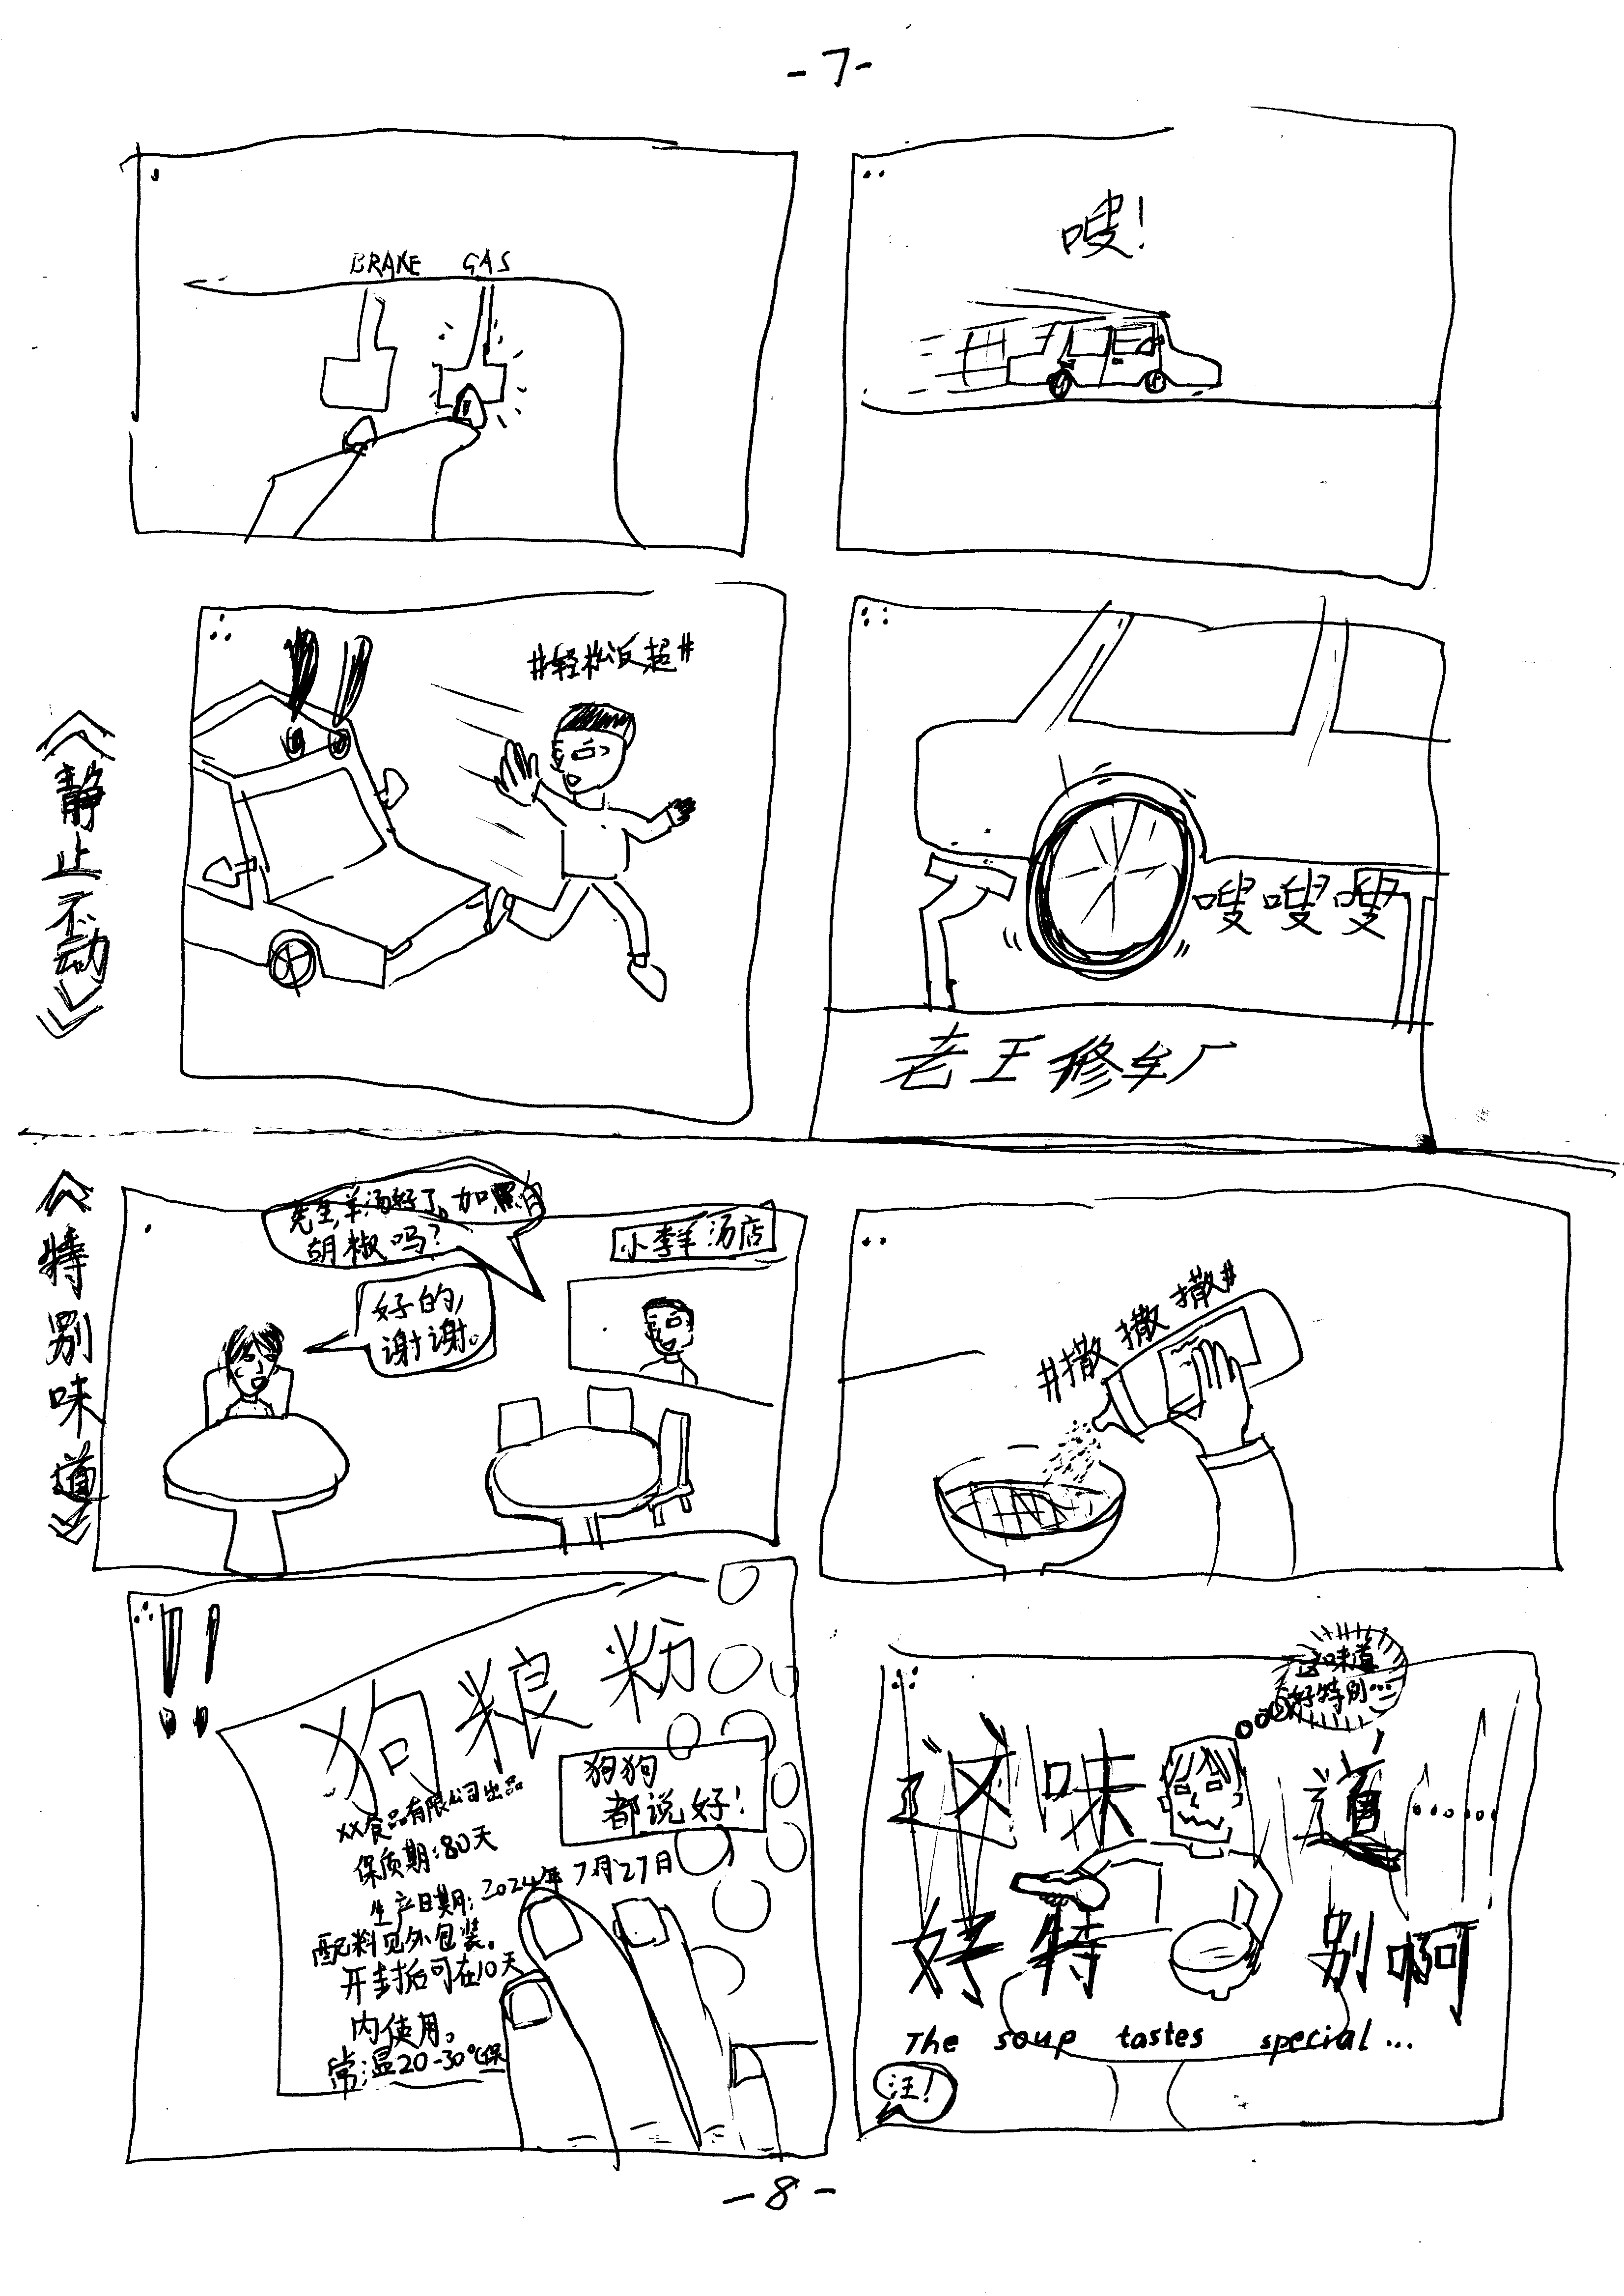 -7-
BRAKE GAS
嗖!
《静止不动》
#轻松反超#
嗖嗖嗖
老王修车厂
《特别味道》
先生,羊汤好了。加黑白
胡椒吗?
好的,
谢谢。
小李羊汤店
#撒撒撒#
狗粮粉
XX食品有限公司出品
狗狗
都说好!
保质期:80天
生产日期:2024年7月27日
配料见外包装。
开封后可在10天
内使用。
常温20-30℃保
这味道
好特别...
这味道......
好特别啊
The soup tastes special...
汪!
-8-